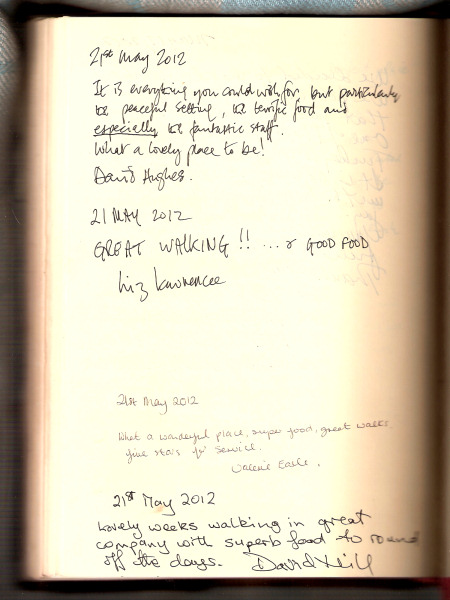 21st May 2012
It is everything you could wish for but particularly
the peaceful setting, the terrific food and
especially the fantastic staff.
What a lovely place to be!
David Hughes.
21 MAY 2012
GREAT WALKING !! ... & GOOD FOOD
Liz Lawrence
21st May 2012
What a wonderful place, super food, great walks.
five stars for service.
Valerie Earle.
21st May 2012
Lovely weeks walking in great
company with superb food to round
off the days. David